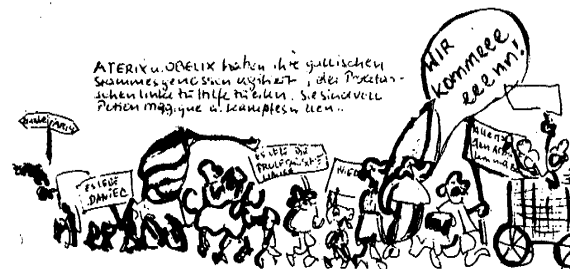 ATERIX u. OBELIX haben ihre gallischen
Stammesgenossen agitiert, der Proletari-
schen linke zu Hilfe zu eilen. Sie sind voll
Potion magique u. kampfeswillen..
WIR
kommeeee
eeenn!
ES LEBE
DANIEL
ES LEBE DIE
PROLETARISCHE
LINKE